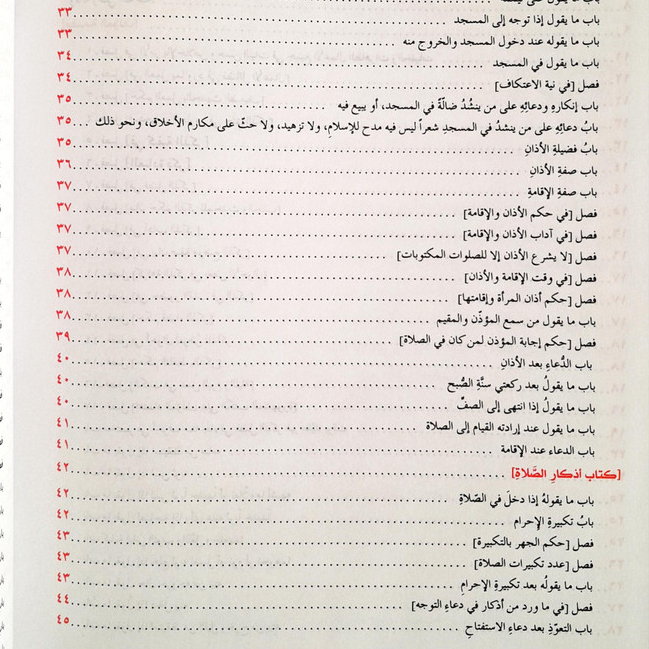 باب ما يقول إذا توجه إلى المسجد ٣٣
باب ما يقوله عند دخول المسجد والخروج منه ٣٣
باب ما يقول في المسجد ٣٤
فصل [في نية الاعتكاف] ٣٤
باب إنكارِهِ ودعائِهِ على من ينشُدُ ضالّةً في المسجد، أو يبيع فيه ٣٥
بابُ دعائِهِ على من ينشدُ في المسجدِ شعراً ليس فيه مدح للإسلامِ، ولا تزهيد، ولا حثّ على مكارم الأخلاق، ونحو ذلك ٣٥
بابُ فضيلةِ الأذانِ ٣٥
باب صفةِ الأذانِ ٣٦
باب صفةِ الإقامةِ ٣٧
فصل [في حكم الأذان والإقامة] ٣٧
فصل [في آداب الأذان والإقامة] ٣٧
فصل [لا يشرع الأذان إلا للصلوات المكتوبات] ٣٧
فصل [في وقت الإقامة والأذان] ٣٨
فصل [حكم أذان المرأة وإقامتها] ٣٨
باب ما يقول من سمع المؤذّن والمقيم ٣٨
فصل [حكم إجابة المؤذن لمن كان في الصلاة] ٣٩
باب الدُّعاءِ بعد الأذانِ ٤٠
باب ما يقولُ بعد ركعتي سنَّةِ الصُّبح ٤٠
باب ما يقولُ إذا انتهى إلى الصفِّ ٤٠
باب ما يقول عند إرادته القيام إلى الصلاة ٤١
باب الدعاء عند الإقامة ٤١
[كتاب أذكارِ الصَّلاةِ] ٤٢
باب ما يقولهُ إذا دخلَ في الصّلاةِ ٤٢
بابُ تكبيرةِ الإحرام ٤٢
فصل [حكم الجهر بالتكبيرة] ٤٣
فصل [عدد تكبيرات الصلاة] ٤٣
باب ما يقولُه بعد تكبيرةِ الإحرامِ ٤٣
فصل [في ما ورد من أذكار في دعاءِ التوجه] ٤٤
باب التعوّذِ بعد دعاءِ الاستفتاحِ ٤٥